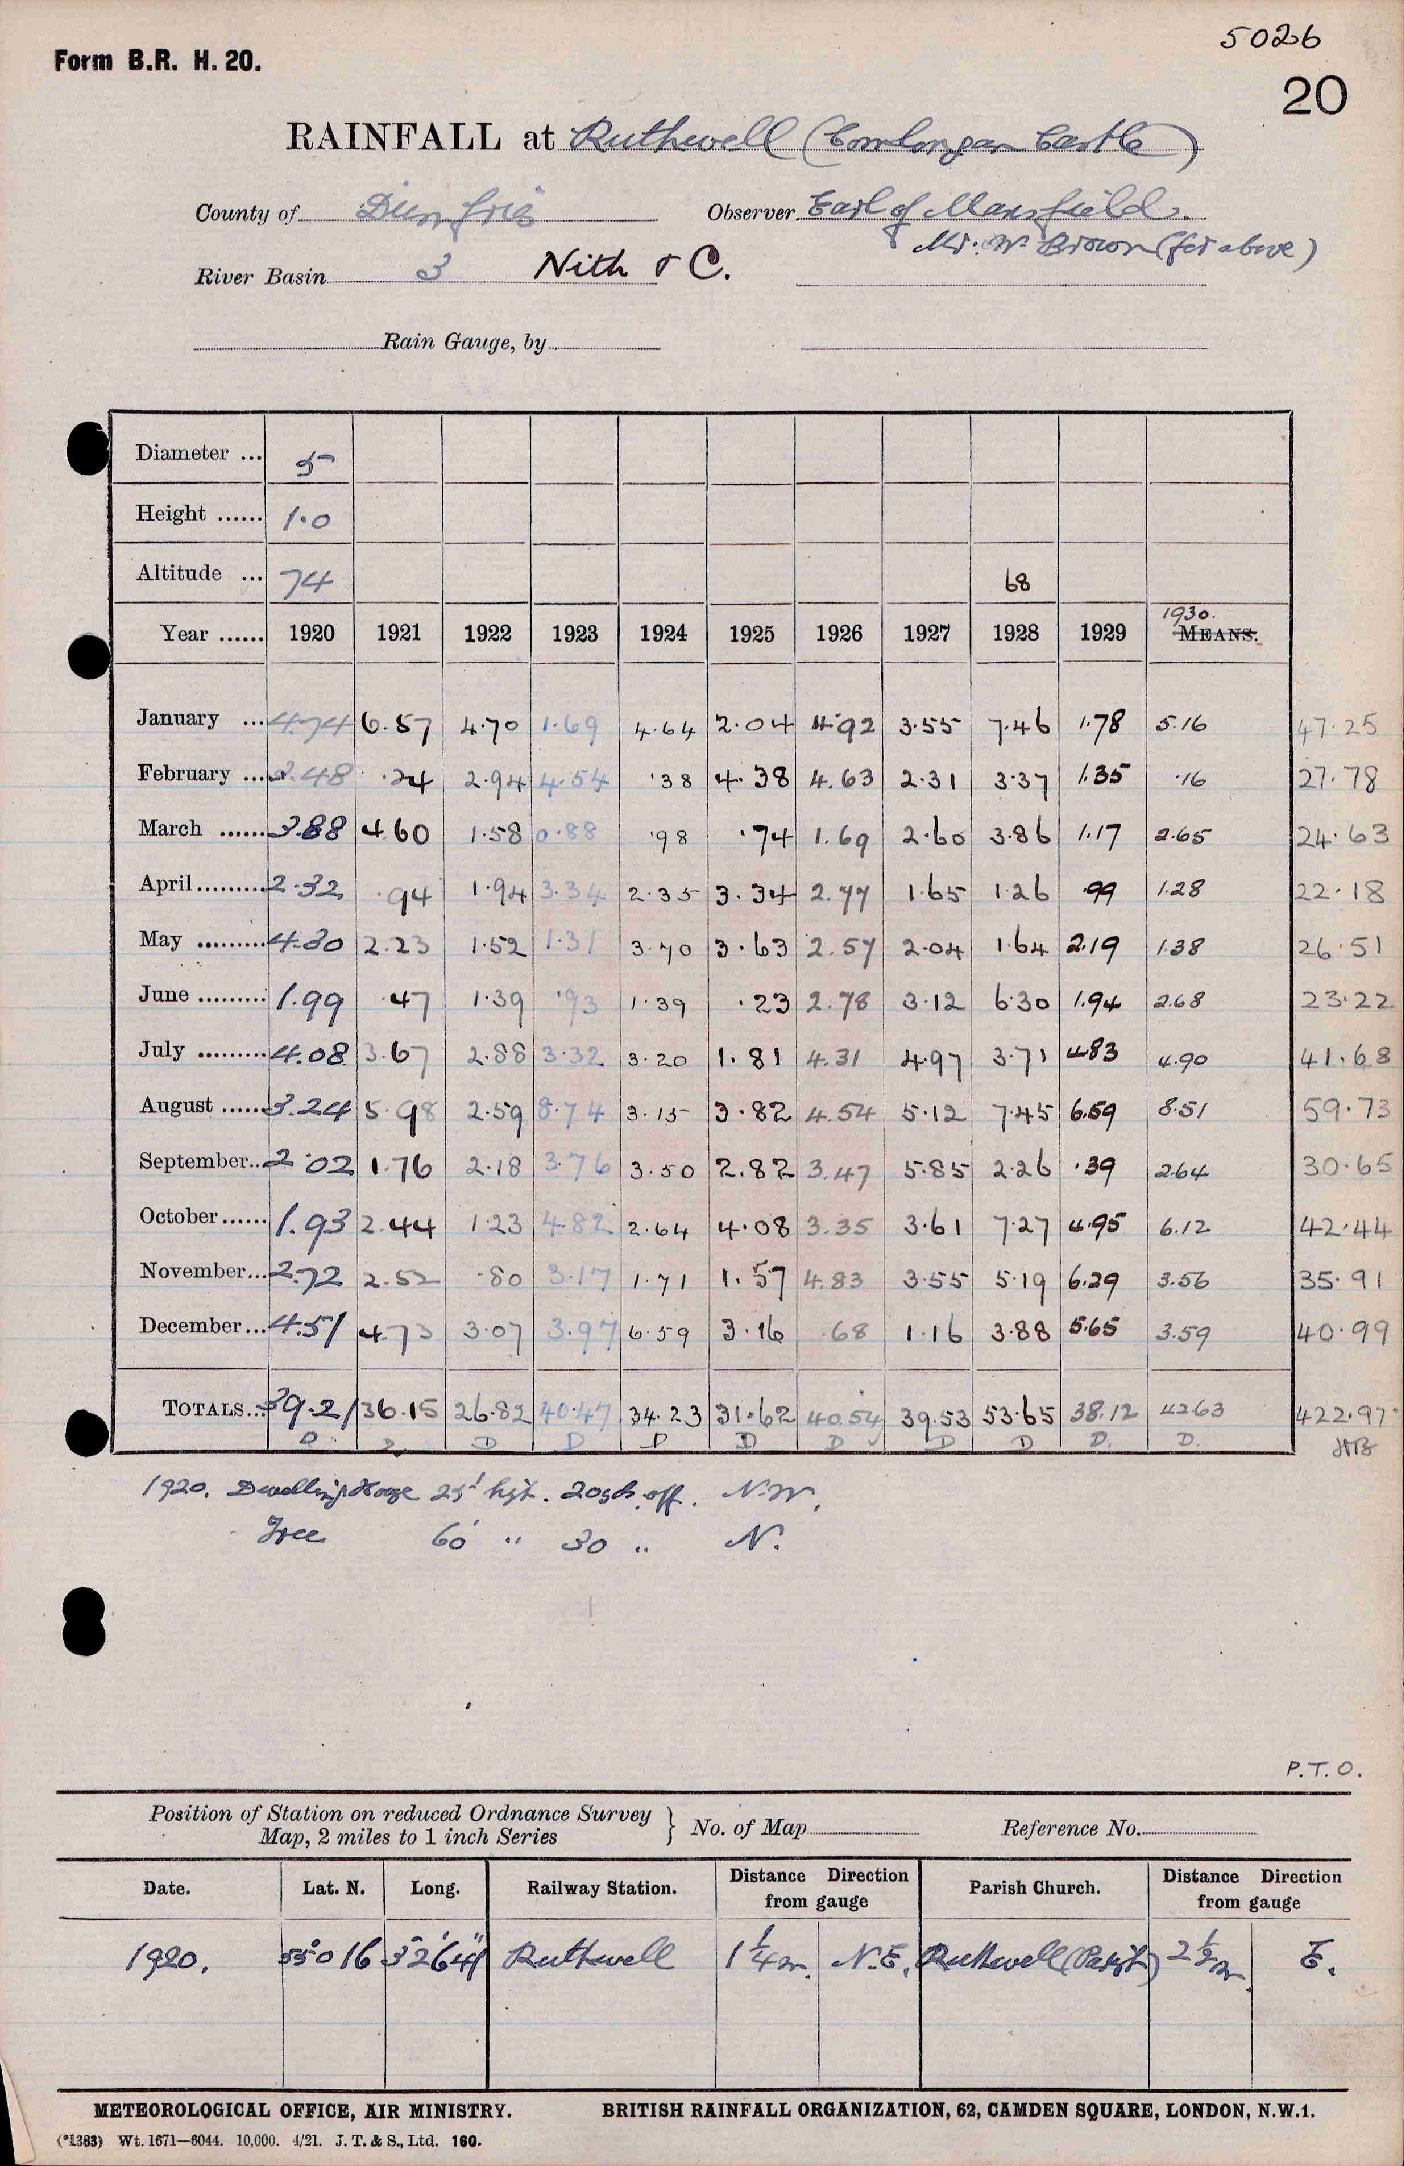 5026
Form B.R. H. 20.
20
RAINFALL at Ruthwell (Comlongan Castle)
County of Dumfries Observer Earl of Mansfield.
Mr. Wm Brown (for above)
River Basin 3 Nith & C.
Rain Gauge, by
Diameter ... 5
Height ...... 1.0
Altitude ... 74 68
1930.
Year ...... 1920 1921 1922 1923 1924 1925 1926 1927 1928 1929 MEANS.
January ... 4.74 6.57 4.70 1.69 4.64 2.04 4.92 3.55 7.46 1.78 5.16 47.25
February ... 3.48 .24 2.94 4.54 .38 4.38 4.63 2.31 3.37 1.35 .16 27.78
March ...... 3.88 4.60 1.58 0.88 .98 .74 1.69 2.60 3.86 1.17 2.65 24.63
April ......... 2.32 .94 1.94 3.34 2.35 3.34 2.77 1.65 1.26 .99 1.28 22.18
May ......... 4.30 2.23 1.52 1.31 3.70 3.63 2.57 2.04 1.64 2.19 1.38 26.51
June ......... 1.99 .47 1.39 .93 1.39 .23 2.78 3.12 6.30 1.94 2.68 23.22
July ......... 4.08 3.67 2.88 3.32 3.20 1.81 4.31 4.97 3.71 4.83 4.90 41.68
August ...... 3.24 5.98 2.59 8.74 3.15 3.82 4.54 5.12 7.45 6.59 8.51 59.73
September.. 2.02 1.76 2.18 3.76 3.50 2.82 3.47 5.85 2.26 .39 2.64 30.65
October...... 1.93 2.44 1.23 4.82 2.64 4.08 3.35 3.61 7.27 4.95 6.12 42.44
November... 2.72 2.52 .80 3.17 1.71 1.57 4.83 3.55 5.19 6.29 3.56 35.91
December... 4.51 4.73 3.07 3.97 6.59 3.16 .68 1.16 3.88 5.65 3.59 40.99
TOTALS... 39.21 36.15 26.82 40.47 34.23 31.62 40.54 39.53 53.65 38.12 42.63 422.97
D D D D D D D D D D. D.
1920. Dwelling House 25' hgt. 20yds off. N.W.
Tree 60' " 30 " N.
P.T.O.
Position of Station on reduced Ordnance Survey Map, 2 miles to 1 inch Series } No. of Map Reference No.
Date. Lat. N. Long. Railway Station. Distance Direction from gauge Parish Church. Distance Direction from gauge
1920. 55° 0 16 3° 26' 41" Ruthwell 1 1/4 m. N.E. Ruthwell (Parish) 2 1/2 m. E.
METEOROLOGICAL OFFICE, AIR MINISTRY. BRITISH RAINFALL ORGANIZATION, 62, CAMDEN SQUARE, LONDON, N.W.1.
(*1383) Wt. 1671—6044. 10,000. 4/21. J. T. & S., Ltd. 160.